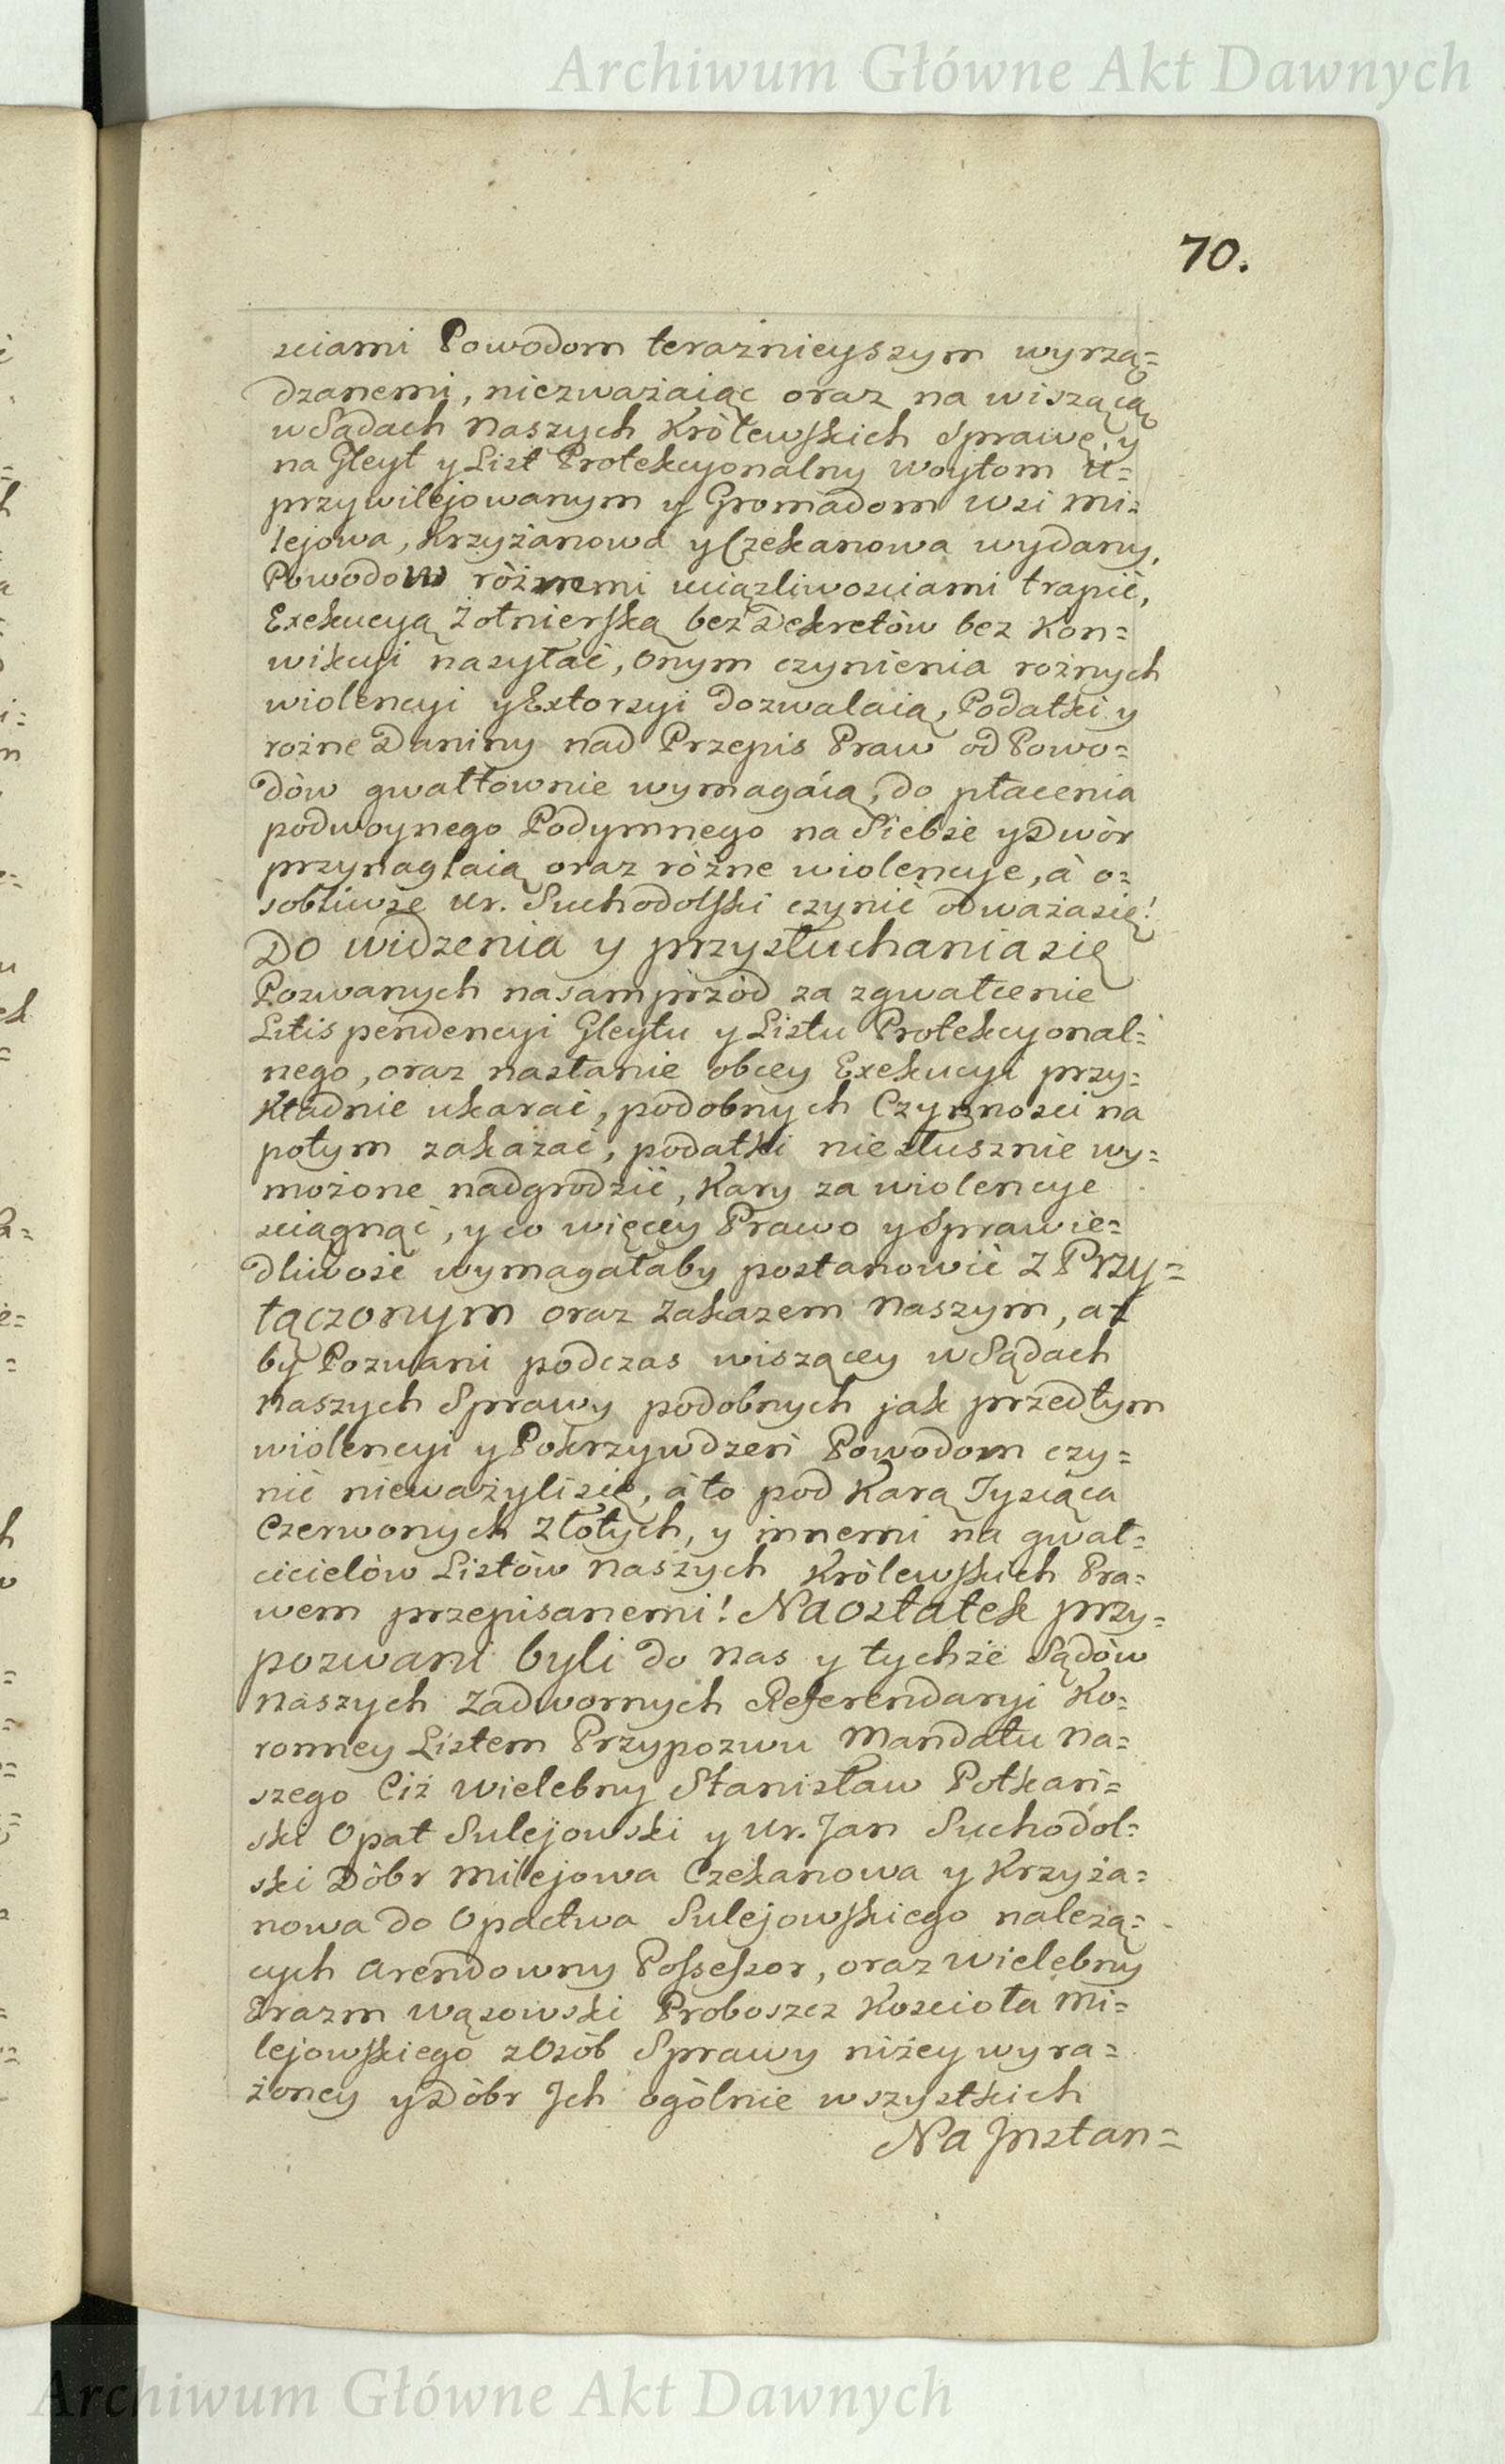 Archiwum Główne Akt Dawnych
70.
sciami Powodom teraznieyszym wyrzą=
dzanemi, niezważaiąc oraz na wiszącą
w Sądach Naszych Królewskich Sprawę, y
na Gleyt y List Protekcyonalny woytom u=
przywilejowanym y Gromadom Wsi Mi=
lejowa, Krzyżanowa y Czekanowa wydany,
Powodow różnemi uciążliwosciami trapić,
Exekucyą Żołnierską bez Dekretów bez Kon=
wikcyi nasyłać, Onym czynienia rożnych
wiolencyi y Extorsyi dozwalaią, Podatki y
rożne Daniny nad Przepis Praw od Powo=
dów gwałtownie wymagaią, do płacenia
podwoynego Podymnego na Siebie y Dwór
przynaglaią oraz różne wiolencye, à o=
sobliwie Ur. Suchodolski czynić odważa się!
Do widzenia y przysłuchania się
Pozwanych nasamprzód za zgwałcenie
Litis pendencyi Gleytu y Listu Protekcyonal=
nego, oraz nasłanie obcey Exekucyi przy=
kładnie ukarać, podobnych Czynnosci na
potym zakazać, podatki niesłusznie wy=
możone nadgrodzić, Kary za wiolencye
sciągnąć, y co więcey Prawo y Sprawie=
dliwość wymagałaby postanowić Z Przy=
łączonym oraz Zakazem Naszym, a=
by Pozwani podczas wiszącey w Sądach
Naszych Sprawy podobnych jak przedtym
wiolencyi y Pokrzywdzeń Powodom czy=
nić nieważyli się, à to pod Karą Tysiąca
Czerwonych Złotych, y innemi na gwał=
cicielów Listów Naszych Królewskich Pra=
wem przepisanemi! Na ostatek przy=
pozwani byli do Nas y tychże Sądów
Naszych Zadwornych Referendaryi Ko=
ronney Listem Przypozwu Mandatu Na=
szego Ciż Wielebny Stanisław Potkań=
ski Opat Sulejowski y Ur. Jan Suchodol=
ski Dóbr Milejowa Czekanowa y Krzyża=
nowa do Opactwa Sulejowskiego należą=
cych Arendowny Possessor, oraz Wielebny
Erazm Wąsowski Proboszcz Kościoła Mi=
lejowskiego z Osób Sprawy niżey wyra=
żoney y Dóbr Jch ogólnie wszystkich
Na Jnstan=
Archiwum Główne Akt Dawnych